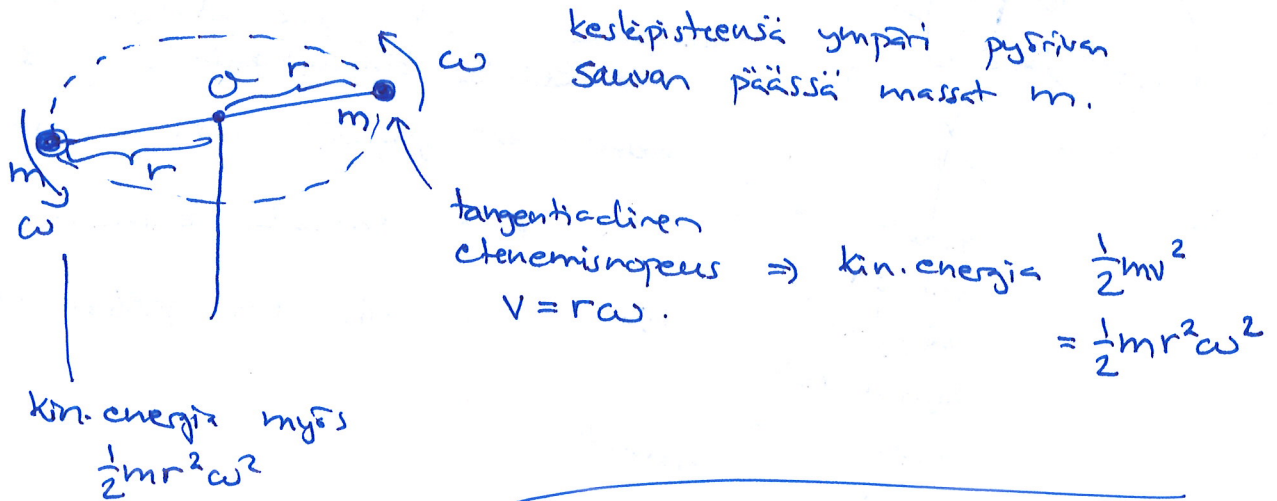 keskipisteensä ympäri pyörivän
sauvan päässä massat m.
ω
r
O
m
r
m
ω
tangentiaalinen
etenemisnopeus ⇒ kin. energia ½mv²
v = rω.
= ½mr²ω²
kin. energia myös
½mr²ω²